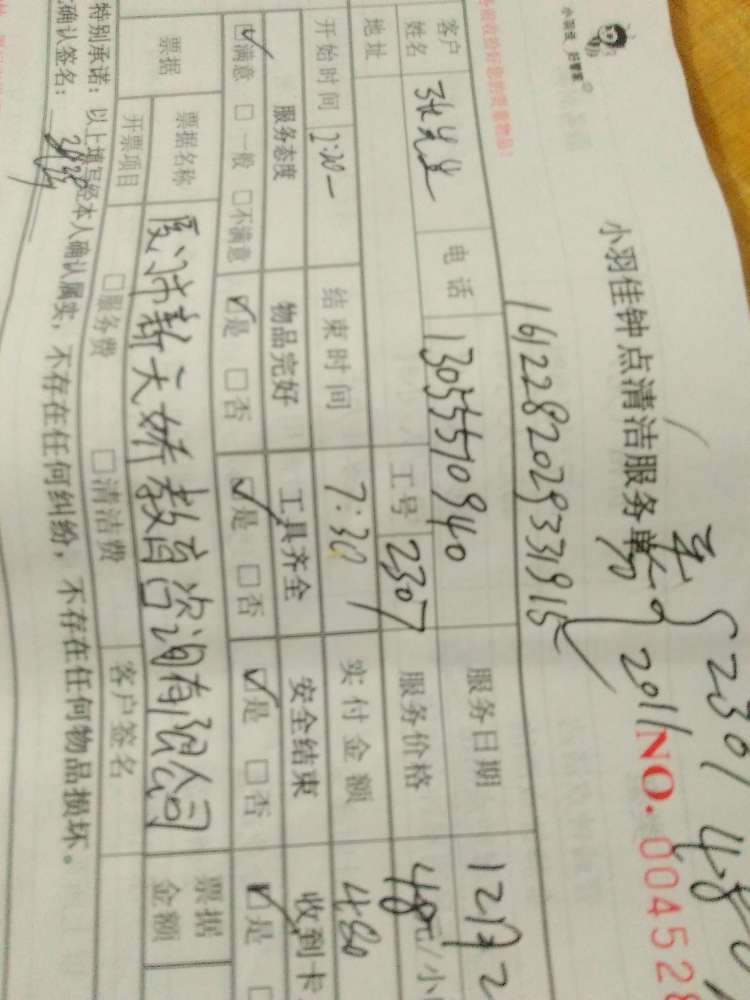 小羽佳 好管家
小羽佳钟点清洁服务单
2301 48
2011
NO. 004528
161228202933191
客户姓名 张先生 电话 13055570940 服务日期 12月2
地址 工号 2307 服务价格 48元/小
开始时间 2:30- 结束时间 7:30 实付金额 480
服务态度 物品完好 工具齐全 安全结束 收到卡
☑满意 □一般 □不满意 ☑是 □否 ☑是 □否 ☑是 □否 ☑是
票据 票据名称 厦门市新天娇教育咨询有限公司 票据金额
开票项目 □服务费 □清洁费 客户签名
特别承诺：以上填写经本人确认属实，不存在任何纠纷，不存在任何物品损坏。
确认签名：